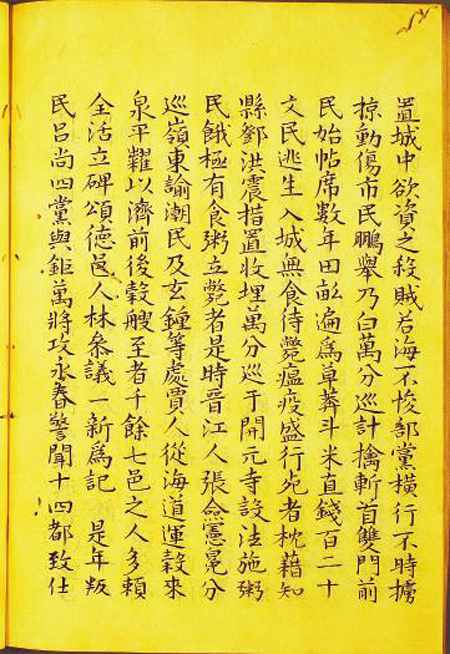 置城中欲資之殺賊若海不悛部黨橫行不時擄
掠動傷市民鵬舉乃白萬分巡計擒斬首雙門前
民始帖席數年田畝遍為草莽斗米直錢百二十
文民逃生入城無食待斃瘟疫盛行死者枕藉知
縣鄧洪震措置收埋萬分巡于開元寺設法施粥
民餓極有食粥立斃者是時晋江人張僉憲冕分
巡嶺東諭潮民及玄鐘等處賈人從海道運穀來
泉平糶以濟前後穀艘至者千餘七邑之人多頼
全活立碑頌德邑人林叅議一新為記　是年叛
民呂尚四黨與鉅萬將攻永春警聞十四都致仕